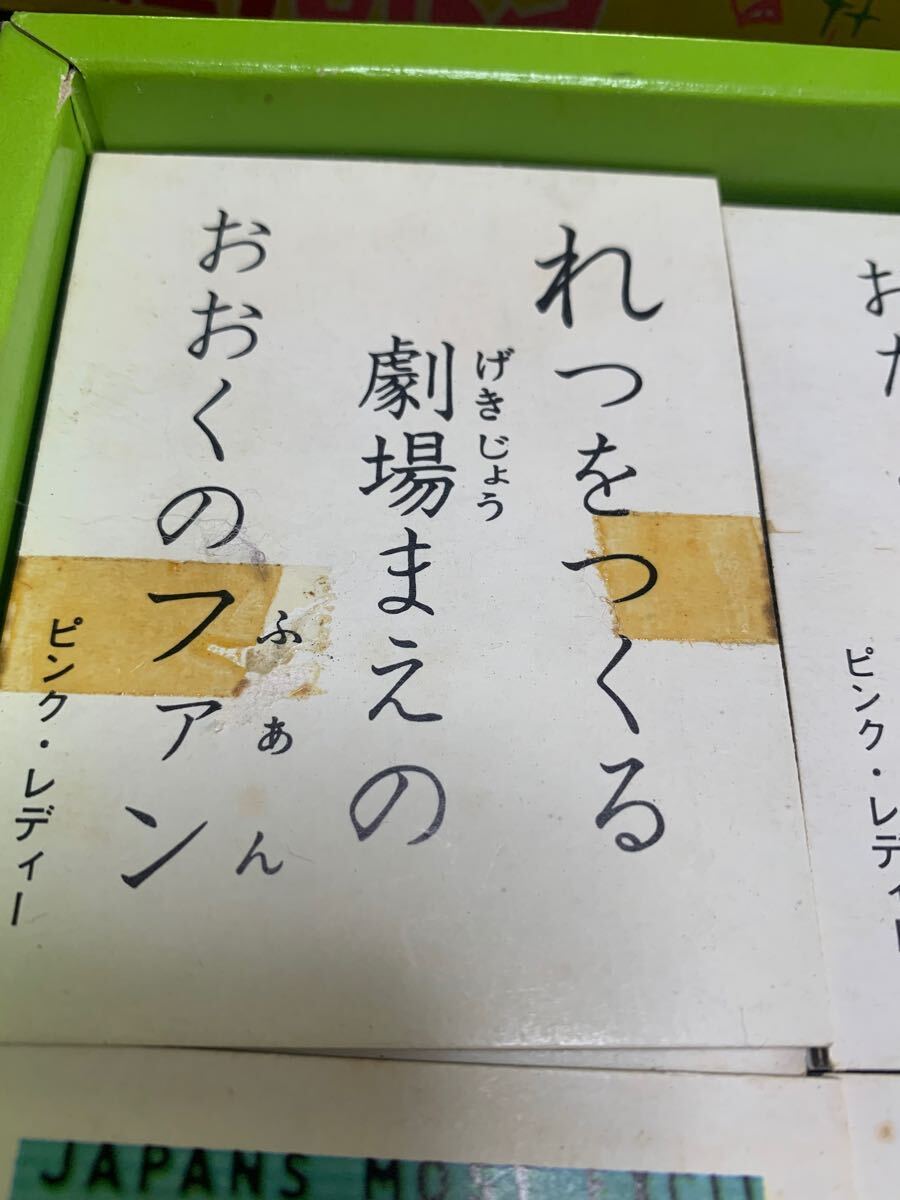 れつをつくる
げきじょう
劇場まえの
おおくのファン
ふぁん
ピンク・レディー
お
ピンク・レディ
JAPANS MO